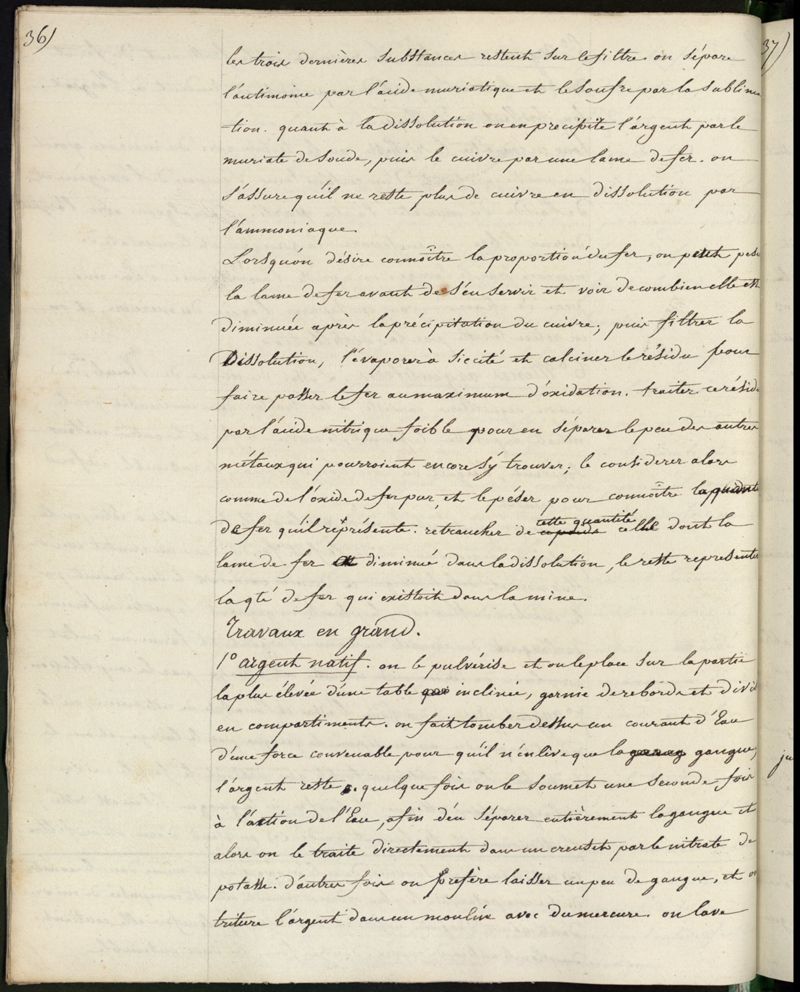 36)
37)
les trois dernières substances restent sur le filtre on sépare
l'antimoine par l'acide muriatique et le soufre par la sublima
=tion. quant à la dissolution on en précipite l'argent par le
muriate de soude, puis le cuivre par une lame de fer. on
s'assure qu'il ne reste plus de cuivre en dissolution par
l'ammoniaque.
Lorsqu'on désire connoître la proportion du fer, on peut pese
la lame de fer avant de s'en servir et voir de combien elle est
diminuée après la précipitation du cuivre; puis filtrer la
Dissolution, l'évaporer à siccité et calciner le résidu pour
faire passer le fer au maximum d'oxidation. traiter ce résid
par l'acide nitrique foible pour en séparer le peu des autres
métaux qui pourroient encore s'y trouver; le considerer alors
comme de l'oxide de fer pur, et le péser pour connoître la quant
de fer qu'il représente. retrancher de cette quantité celle dont la
lame de fer est diminué dans la dissolution, le reste represente
la qté de fer qui existoit dans la mine.
Travaux en grand.
1° argent natif. on le pulvérise et on le place sur la partie
la plus élevée d'une table inclinée, garnie de rebords et divis
en compartiments. on fait tomber dessus un courant d'Eau
d'une force convenable pour qu'il n'enlève que la gangue,
l'argent reste. quelque fois on le soumet une seconde fois
à l'action de l'Eau, afin d'en séparer entièrement la gangue et
alors on le traite directement dans un creuset par le nitrate de
potasse. d'autres fois on préfère laisser un peu de gangue, et o
triture l'argent dans un moulin avec du mercure. on lave
ju